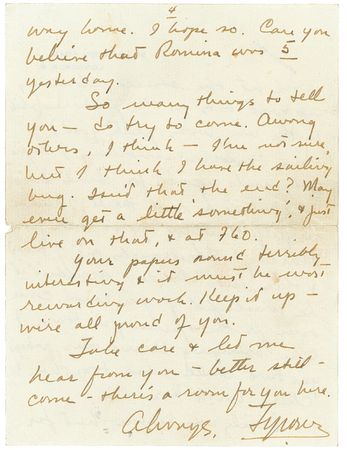 4
way home. I hope so. Can you
believe that Romina was 5
yesterday.
So many things to tell
you — do try to come. Among
others, I think — I'm not sure,
but I think I have the sailing
bug. Isn't that the end? May
even get a little 'something', & just
live on that, & at 760.
Your papers sound terribly
interesting & it must be most
rewarding work. Keep it up —
we're all proud of you.
Take care & let me
hear from you — better still —
come — there's a room for you here.
Always,